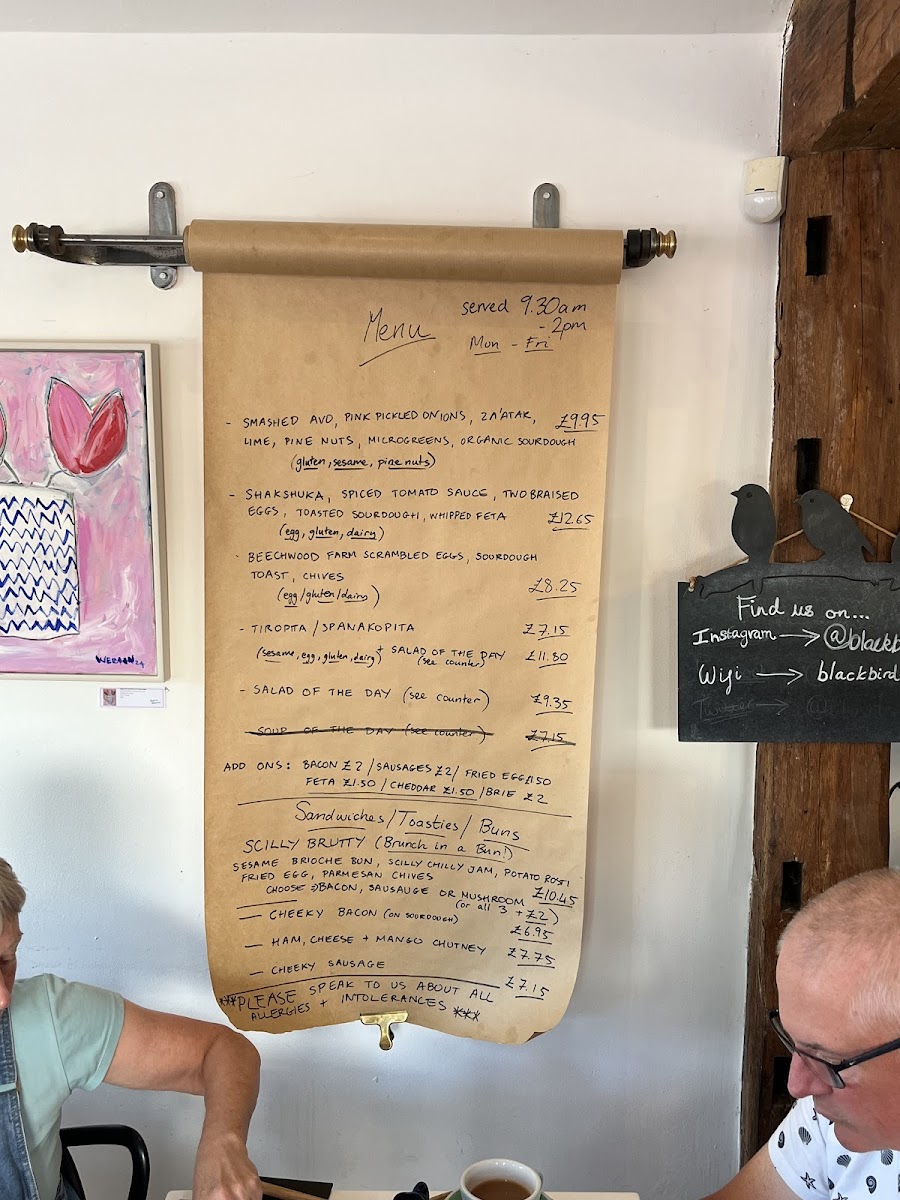 Menu
served 9.30am
- 2pm
Mon - Fri
- SMASHED AVO, PINK PICKLED ONIONS, ZA'ATAR, £9.95
LIME, PINE NUTS, MICROGREENS, ORGANIC SOURDOUGH
(gluten, sesame, pine nuts)
- SHAKSHUKA, SPICED TOMATO SAUCE, TWO BRAISED
EGGS, TOASTED SOURDOUGH, WHIPPED FETA £12.65
(egg, gluten, dairy)
- BEECHWOOD FARM SCRAMBLED EGGS, SOURDOUGH
TOAST, CHIVES £8.25
(egg/gluten/dairy)
- TIROPITA / SPANAKOPITA £7.15
(sesame, egg, gluten, dairy) + SALAD OF THE DAY £11.80
(see counter)
- SALAD OF THE DAY (see counter) £9.35
SOUP OF THE DAY (see counter) £7.15
ADD ONS: BACON £2 / SAUSAGES £2 / FRIED EGG £1.50
FETA £1.50 / CHEDDAR £1.50 / BRIE £2
Sandwiches / Toasties / Buns
SCILLY BRUTTY (Brunch in a Bun!)
SESAME BRIOCHE BUN, SCILLY CHILLY JAM, POTATO ROSTI
FRIED EGG, PARMESAN CHIVES
CHOOSE ⇒ BACON, SAUSAUGE OR MUSHROOM £10.45
(or all 3 + £2)
— CHEEKY BACON (ON SOURDOUGH) £6.95
— HAM, CHEESE + MANGO CHUTNEY £7.75
— CHEEKY SAUSAGE £7.15
***PLEASE SPEAK TO US ABOUT ALL
ALLERGIES + INTOLERANCES ***
Find us on...
Instagram → @blackb
Wifi → blackbird
Twitter → @